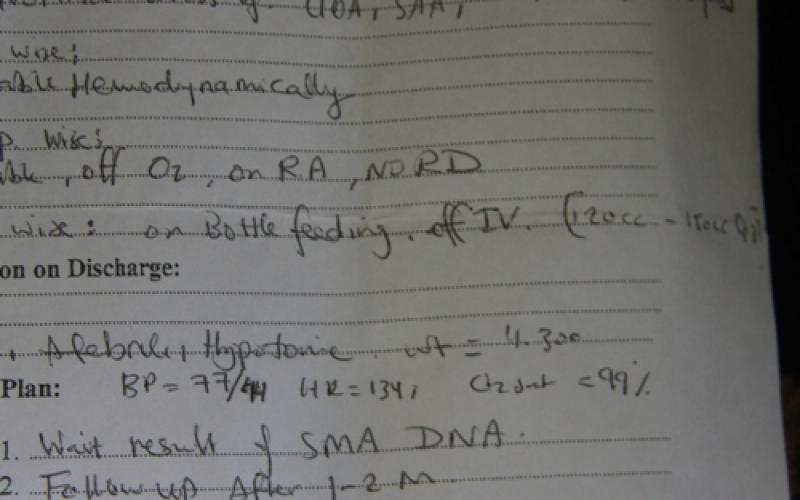 wise:
able Hemodynamically
p. wise:
able, off O2, on RA, NO RD
wise: on Bottle feeding, off IV. (120cc - 150cc
on on Discharge:
Afebrile, Hypotonic wt = 4.300
Plan: BP = 77/44 HR = 134, O2 sat = 99%
1. Wait result of SMA DNA.
2. Follow up After 1-2 M